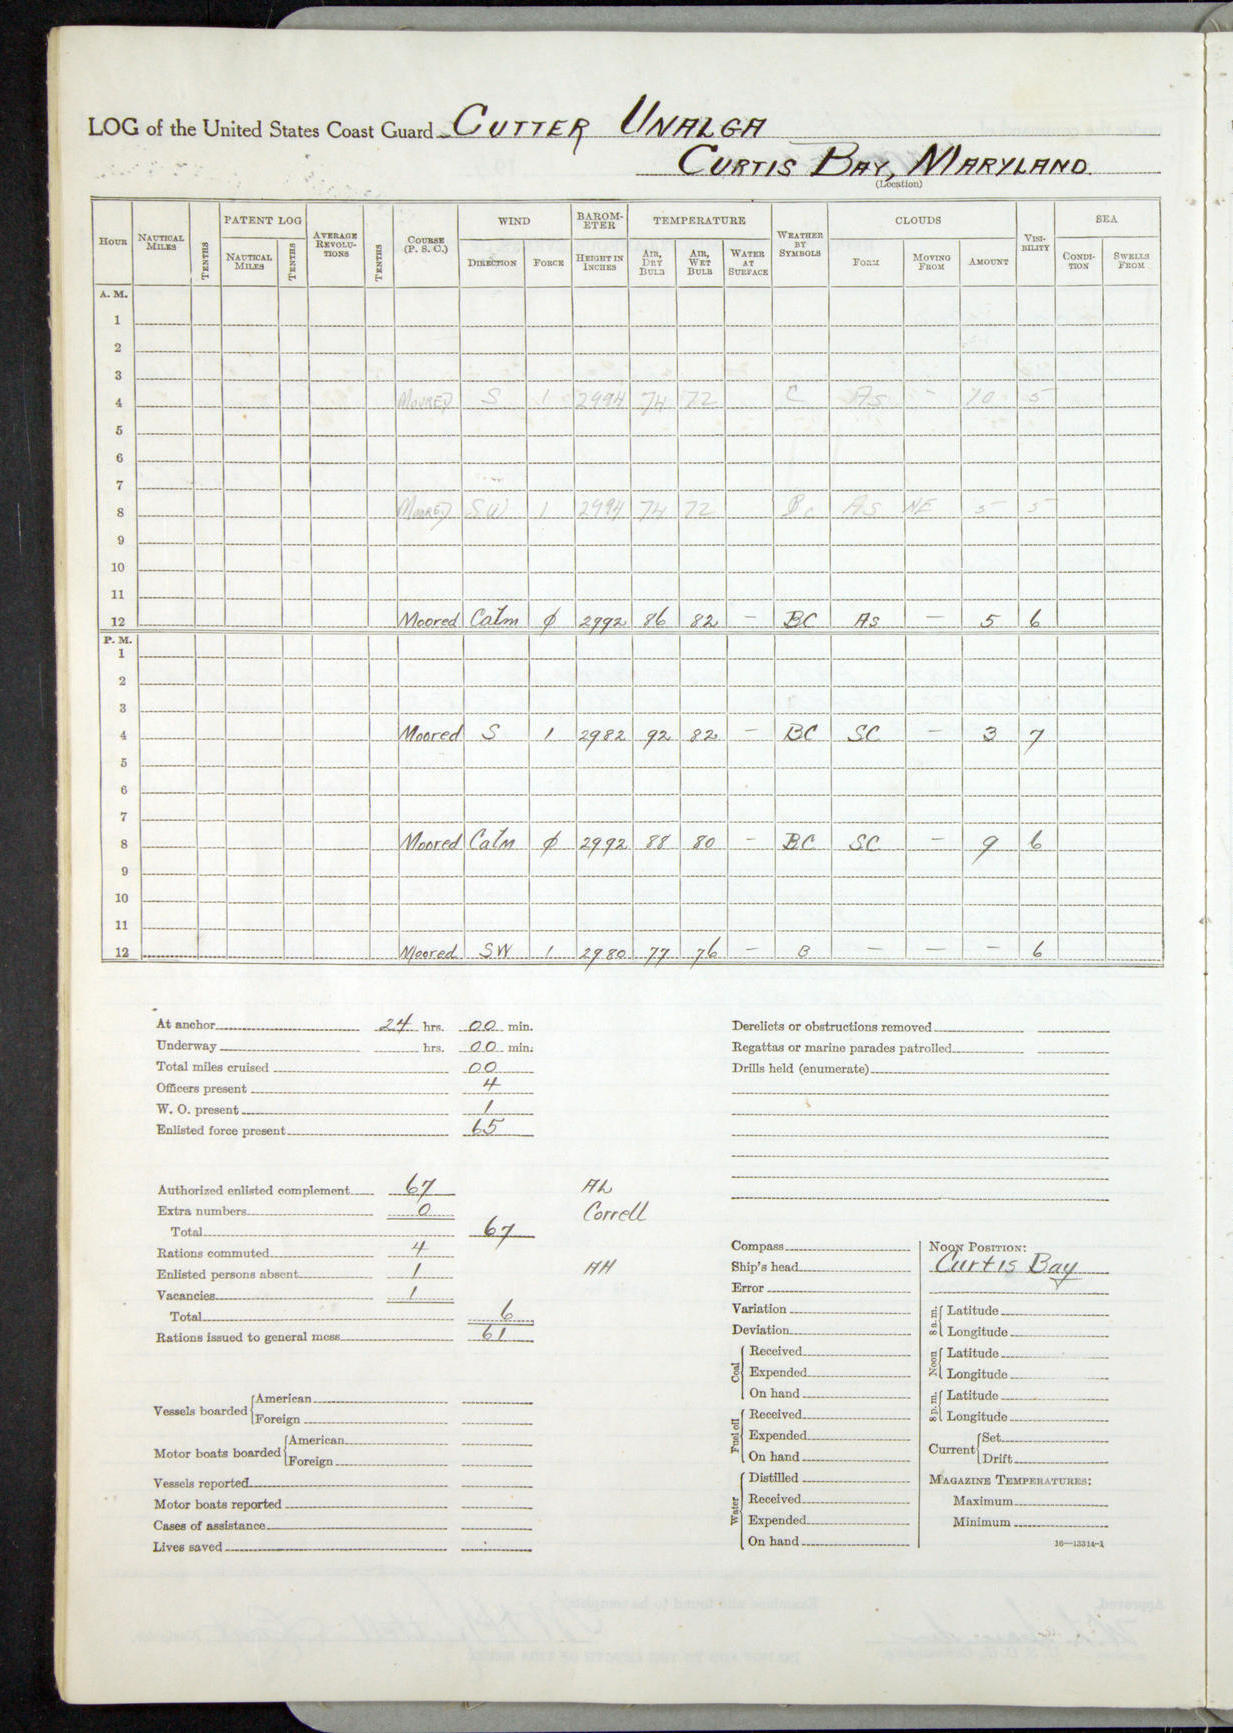 LOG of the United States Coast Guard CUTTER UNALGA
CURTIS BAY, MARYLAND.
(Location)
HOUR NAUTICAL MILES TENTHS PATENT LOG NAUTICAL MILES TENTHS AVERAGE REVOLUTIONS TENTHS COURSE (P. S. C.) WIND DIRECTION FORCE BAROMETER HEIGHT IN INCHES TEMPERATURE AIR, DRY BULB AIR, WET BULB WATER AT SURFACE WEATHER BY SYMBOLS CLOUDS FORM MOVING FROM AMOUNT VISIBILITY SEA CONDITION SWELLS FROM
A. M.
1
2
3
4 MOORED S 1 2994 74 72 C As - 10 5
5
6
7
8 MOORED SW 1 2994 74 72 Bc As NE 5 5
9
10
11
12 Moored Calm ϕ 2992 86 82 - BC As - 5 6
P. M.
1
2
3
4 Moored S 1 2982 92 82 - BC SC - 3 7
5
6
7
8 Moored Calm ϕ 2992 88 80 - BC SC - 9 6
9
10
11
12 Moored SW 1 2980 77 76 - B - - - 6
At anchor 24 hrs. 00 min.
Underway hrs. 00 min.
Total miles cruised 00
Officers present 4
W. O. present 1
Enlisted force present 65
Authorized enlisted complement 67 AL
Extra numbers 0 Correll
Total 67
Rations commuted 4
Enlisted persons absent 1 AH
Vacancies 1
Total 6
Rations issued to general mess 61
Vessels boarded American
Foreign
Motor boats boarded American
Foreign
Vessels reported
Motor boats reported
Cases of assistance
Lives saved
Derelicts or obstructions removed
Regattas or marine parades patrolled
Drills held (enumerate)
Compass
Ship's head
Error
Variation
Deviation
Coal Received
Expended
On hand
Fuel oil Received
Expended
On hand
Water Distilled
Received
Expended
On hand
NOON POSITION:
Curtis Bay
8 a.m. Latitude
Longitude
Noon Latitude
Longitude
8 p.m. Latitude
Longitude
Current Set
Drift
MAGAZINE TEMPERATURES:
Maximum
Minimum
16—13314-1